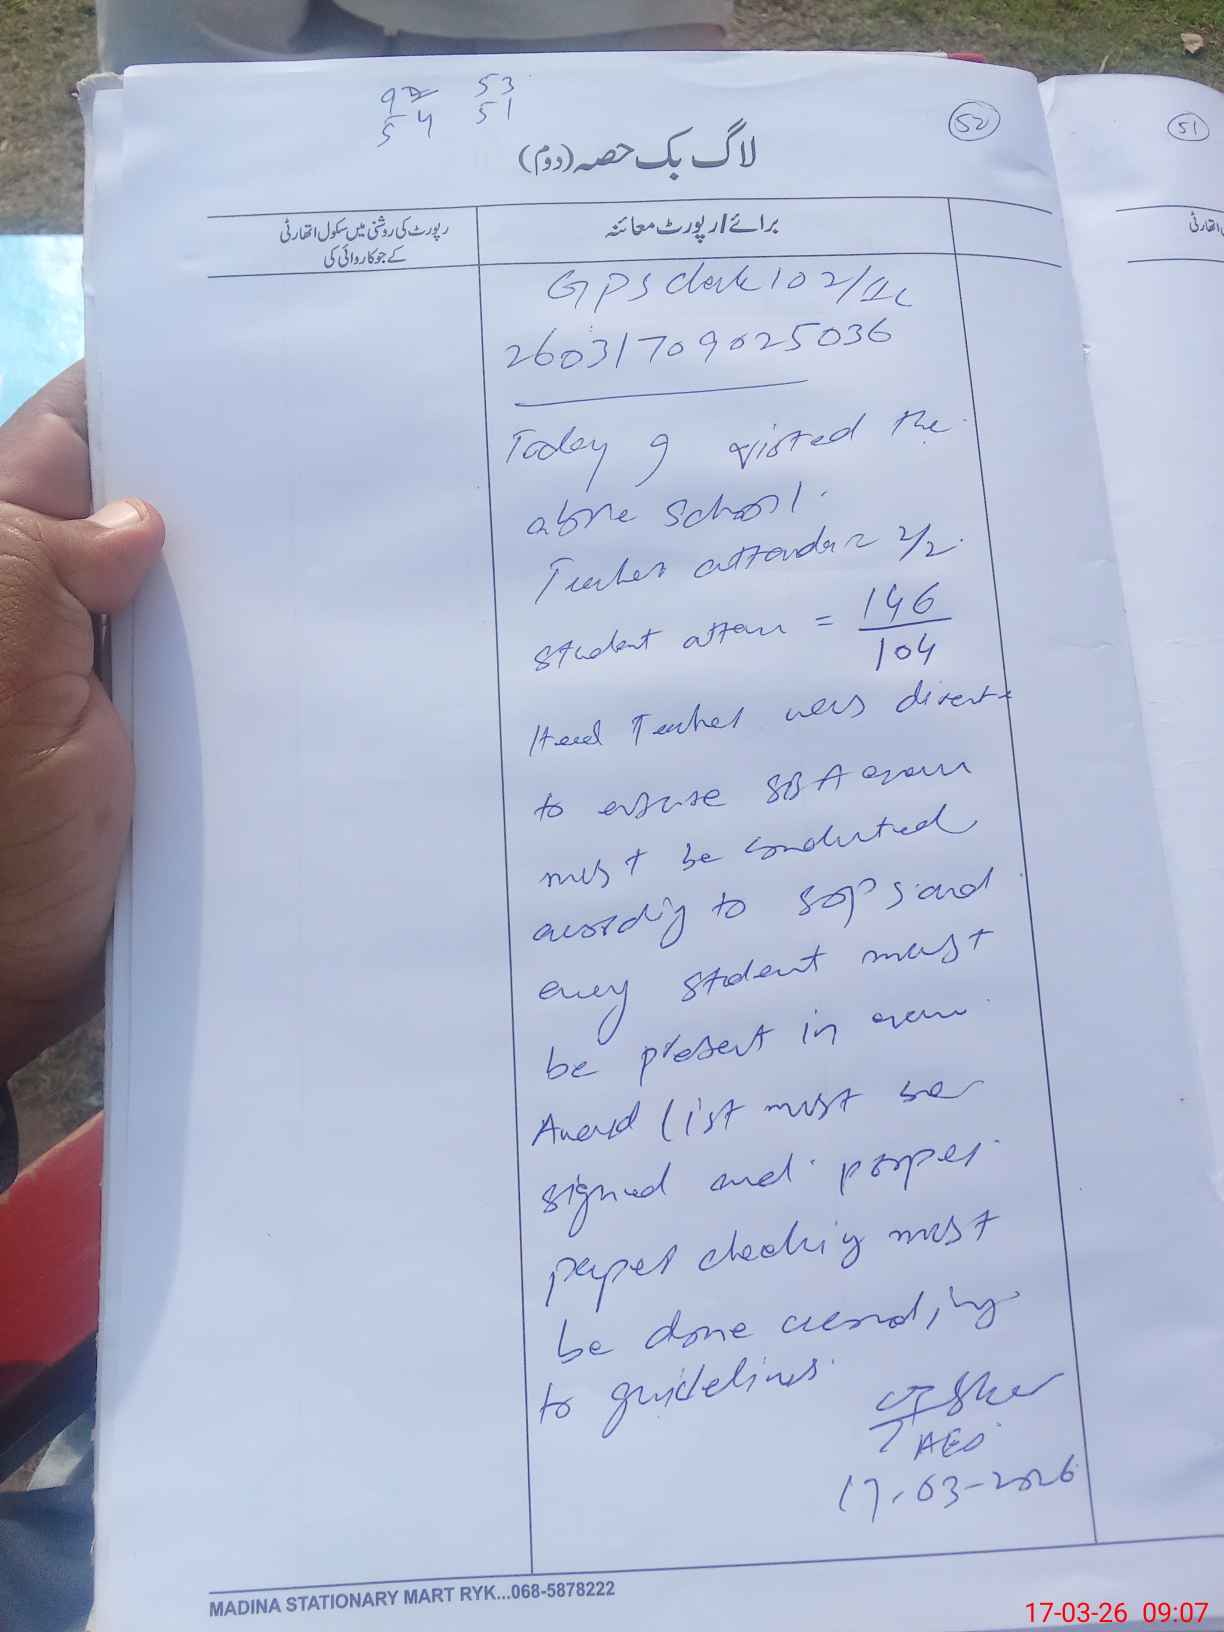 92 53
54 51
52
51
لاگ بک حصہ (دوم)
برائے / رپورٹ معائنہ
رپورٹ کی روشنی میں سکول اتھارٹی
کے جو کاروائی کی
اتھارٹی
GPS chak 102/1L
26031709025036
Today I visited the
above School.
Teacher attendance 2/2.
Student atten = 146
104
Head Teacher was direct
to ensure SBA exam
must be conducted
according to SOPs and
every student must
be present in exam.
Award list must be
signed and proper
paper checking must
be done according
to guidelines.
AEO
17-03-2026
MADINA STATIONARY MART RYK...068-5878222
17-03-26 09:07